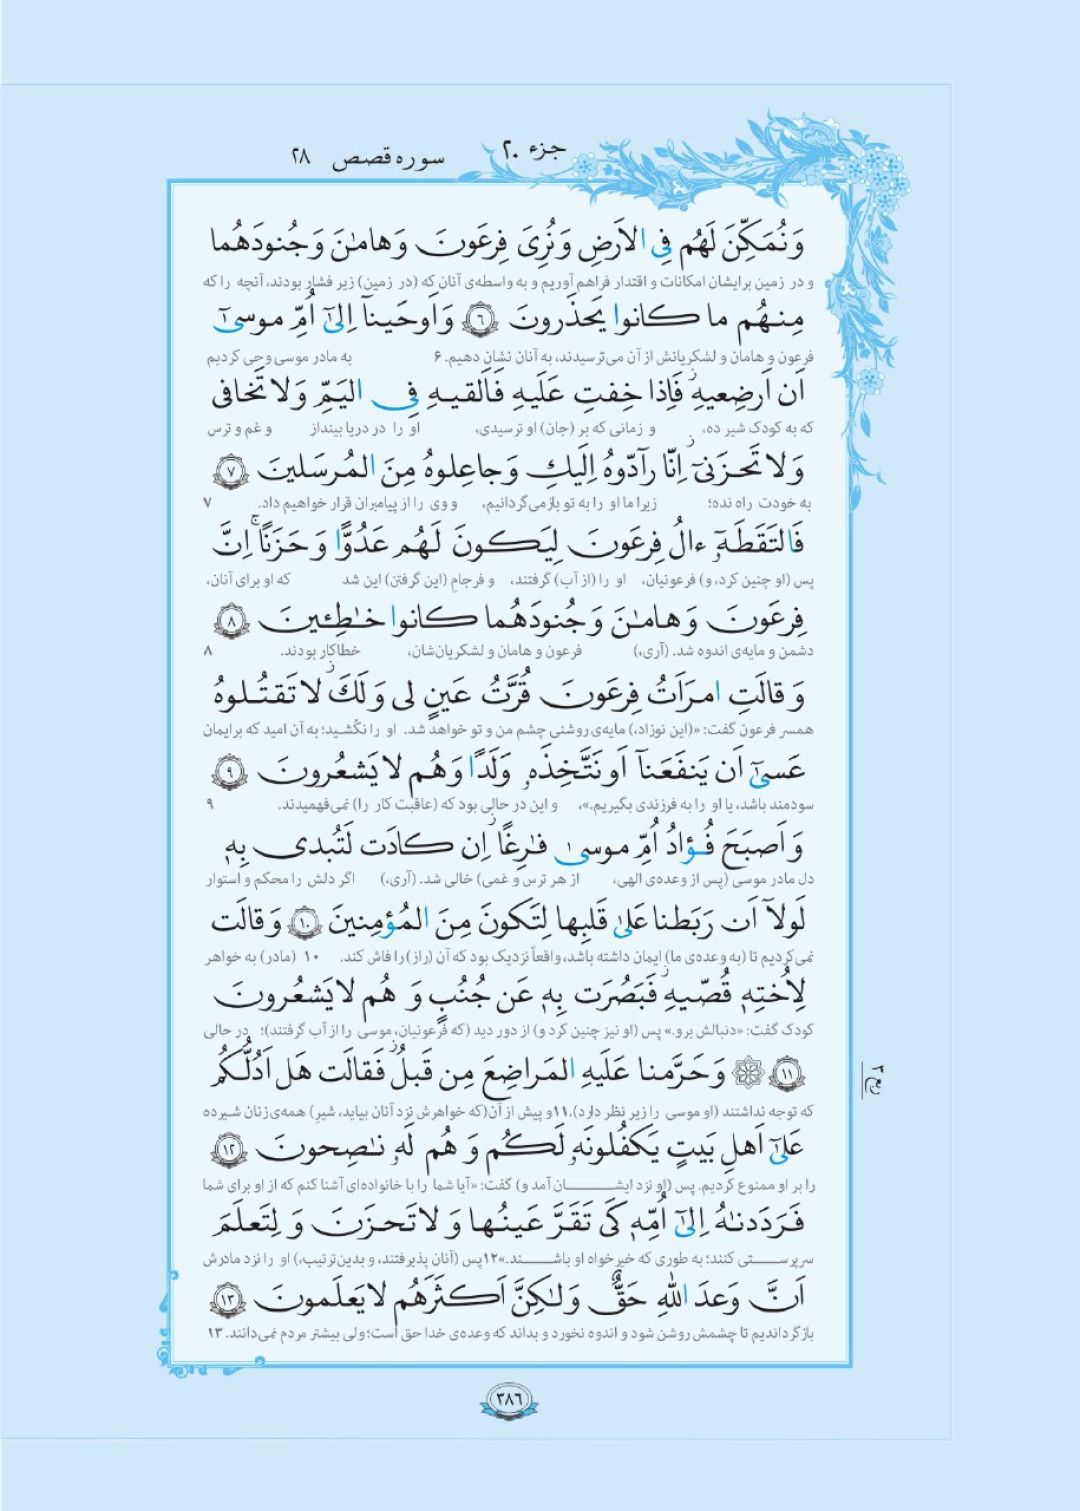 جزء ۲۰
سوره قصص ۲۸
وَنُمَكِّنَ لَهُم فِی الاَرضِ وَنُرِیَ فِرعَونَ وَهامٰنَ وَجُنودَهُما
و در زمین برایشان امکانات و اقتدار فراهم آوریم و به واسطه‌ی آنان که (در زمین) زیر فشار بودند، آنچه را که
مِنهُم ما کانوا یَحذَرونَ ﴿٦﴾ وَاَوحَینآ اِلیٰٓ اُمِّ موسیٰٓ
فرعون و هامان و لشکریانش از آن می‌ترسیدند، به آنان نشان دهیم. ۶ به مادر موسی وحی کردیم
اَن اَرضِعیهِ ۖ فَاِذا خِفتِ عَلَیهِ فَاَلقیهِ فِی الیَمِّ وَلا تَخافی
که به کودک شیر ده، و زمانی که بر (جان) او ترسیدی، او را در دریا بینداز و غم و ترس
وَلا تَحزَنیٓ ۖ اِنّا رآدّوهُ اِلَیكِ وَجاعِلوهُ مِنَ المُرسَلینَ ﴿٧﴾
به خودت راه نده؛ زیرا ما او را به تو بازمی‌گردانیم، و وی را از پیامبران قرار خواهیم داد. ۷
فَالتَقَطَهٗٓ ءالُ فِرعَونَ لِیَکونَ لَهُم عَدُوًّا وَحَزَنًا ۗ اِنَّ
پس (او چنین کرد، و) فرعونیان، او را (از آب) گرفتند، و فرجامِ (این گرفتن) این شد که او برای آنان،
فِرعَونَ وَهامٰنَ وَجُنودَهُما کانوا خٰطِـٔینَ ﴿٨﴾
دشمن و مایه‌ی اندوه شد. (آری،) فرعون و هامان و لشکریان‌شان، خطاکار بودند. ۸
وَقالَتِ امرَاَتُ فِرعَونَ قُرَّتُ عَینٍ لی وَلَكَ ۖ لا تَقتُلوهُ
همسر فرعون گفت: «(این نوزاد،) مایه‌ی روشنی چشم من و تو خواهد شد. او را نکُشید؛ به آن امید که برایمان
عَسیٰٓ اَن یَنفَعَنآ اَو نَتَّخِذَهٗ وَلَدًا وَهُم لا یَشعُرونَ ﴿٩﴾
سودمند باشد، یا او را به فرزندی بگیریم.»، و این در حالی بود که (عاقبت کار را) نمی‌فهمیدند. ۹
وَاَصبَحَ فُؤادُ اُمِّ موسیٰ فٰرِغًا ۖ اِن کادَت لَتُبدی بِهٖ
دل مادر موسی (پس از وعده‌ی الهی، از هر ترس و غمی) خالی شد. (آری،) اگر دلش را محکم و استوار
لَولآ اَن رَبَطنا عَلیٰ قَلبِها لِتَکونَ مِنَ المُؤمِنینَ ﴿١٠﴾ وَقالَت
نمی‌کردیم تا (به وعده‌ی ما) ایمان داشته باشد، واقعاً نزدیک بود که آن (راز) را فاش کند. ۱۰ (مادر) به خواهر
لِاُختِهٖ قُصّیهِ ۖ فَبَصُرَت بِهٖ عَن جُنُبٍ وَهُم لا یَشعُرونَ
کودک گفت: «دنبالش برو.» پس (او نیز چنین کرد و) از دور دید (که فرعونیان، موسی را از آب گرفتند)؛ در حالی
﴿١١﴾ ۞ وَحَرَّمنا عَلَیهِ المَراضِعَ مِن قَبلُ فَقالَت هَل اَدُلُّکُم
که توجه نداشتند (او موسی را زیر نظر دارد).۱۱و پیش از آن(که خواهرش نزد آنان بیاید، شیرِ) همه‌ی زنان شیرده
عَلیٰٓ اَهلِ بَیتٍ یَکفُلونَهٗ لَکُم وَهُم لَهٗ نٰصِحونَ ﴿١٢﴾
را بر او ممنوع کردیم. پس (او نزد ایشان آمد و) گفت: «آیا شما را با خانواده‌ای آشنا کنم که از او برای شما
فَرَدَدنٰهُ اِلیٰٓ اُمِّهٖ کَی تَقَرَّ عَینُها وَلا تَحزَنَ وَلِتَعلَمَ
سرپرستی کنند؛ به طوری که خیرخواه او باشند.»۱۲پس (آنان پذیرفتند، و بدین‌ترتیب،) او را نزد مادرش
اَنَّ وَعدَ اللّٰهِ حَقٌّ وَلٰکِنَّ اَکثَرَهُم لا یَعلَمونَ ﴿١٣﴾
بازگرداندیم تا چشمش روشن شود و اندوه نخورد و بداند که وعده‌ی خدا حق است؛ ولی بیشتر مردم نمی‌دانند. ۱۳
٣٨٦